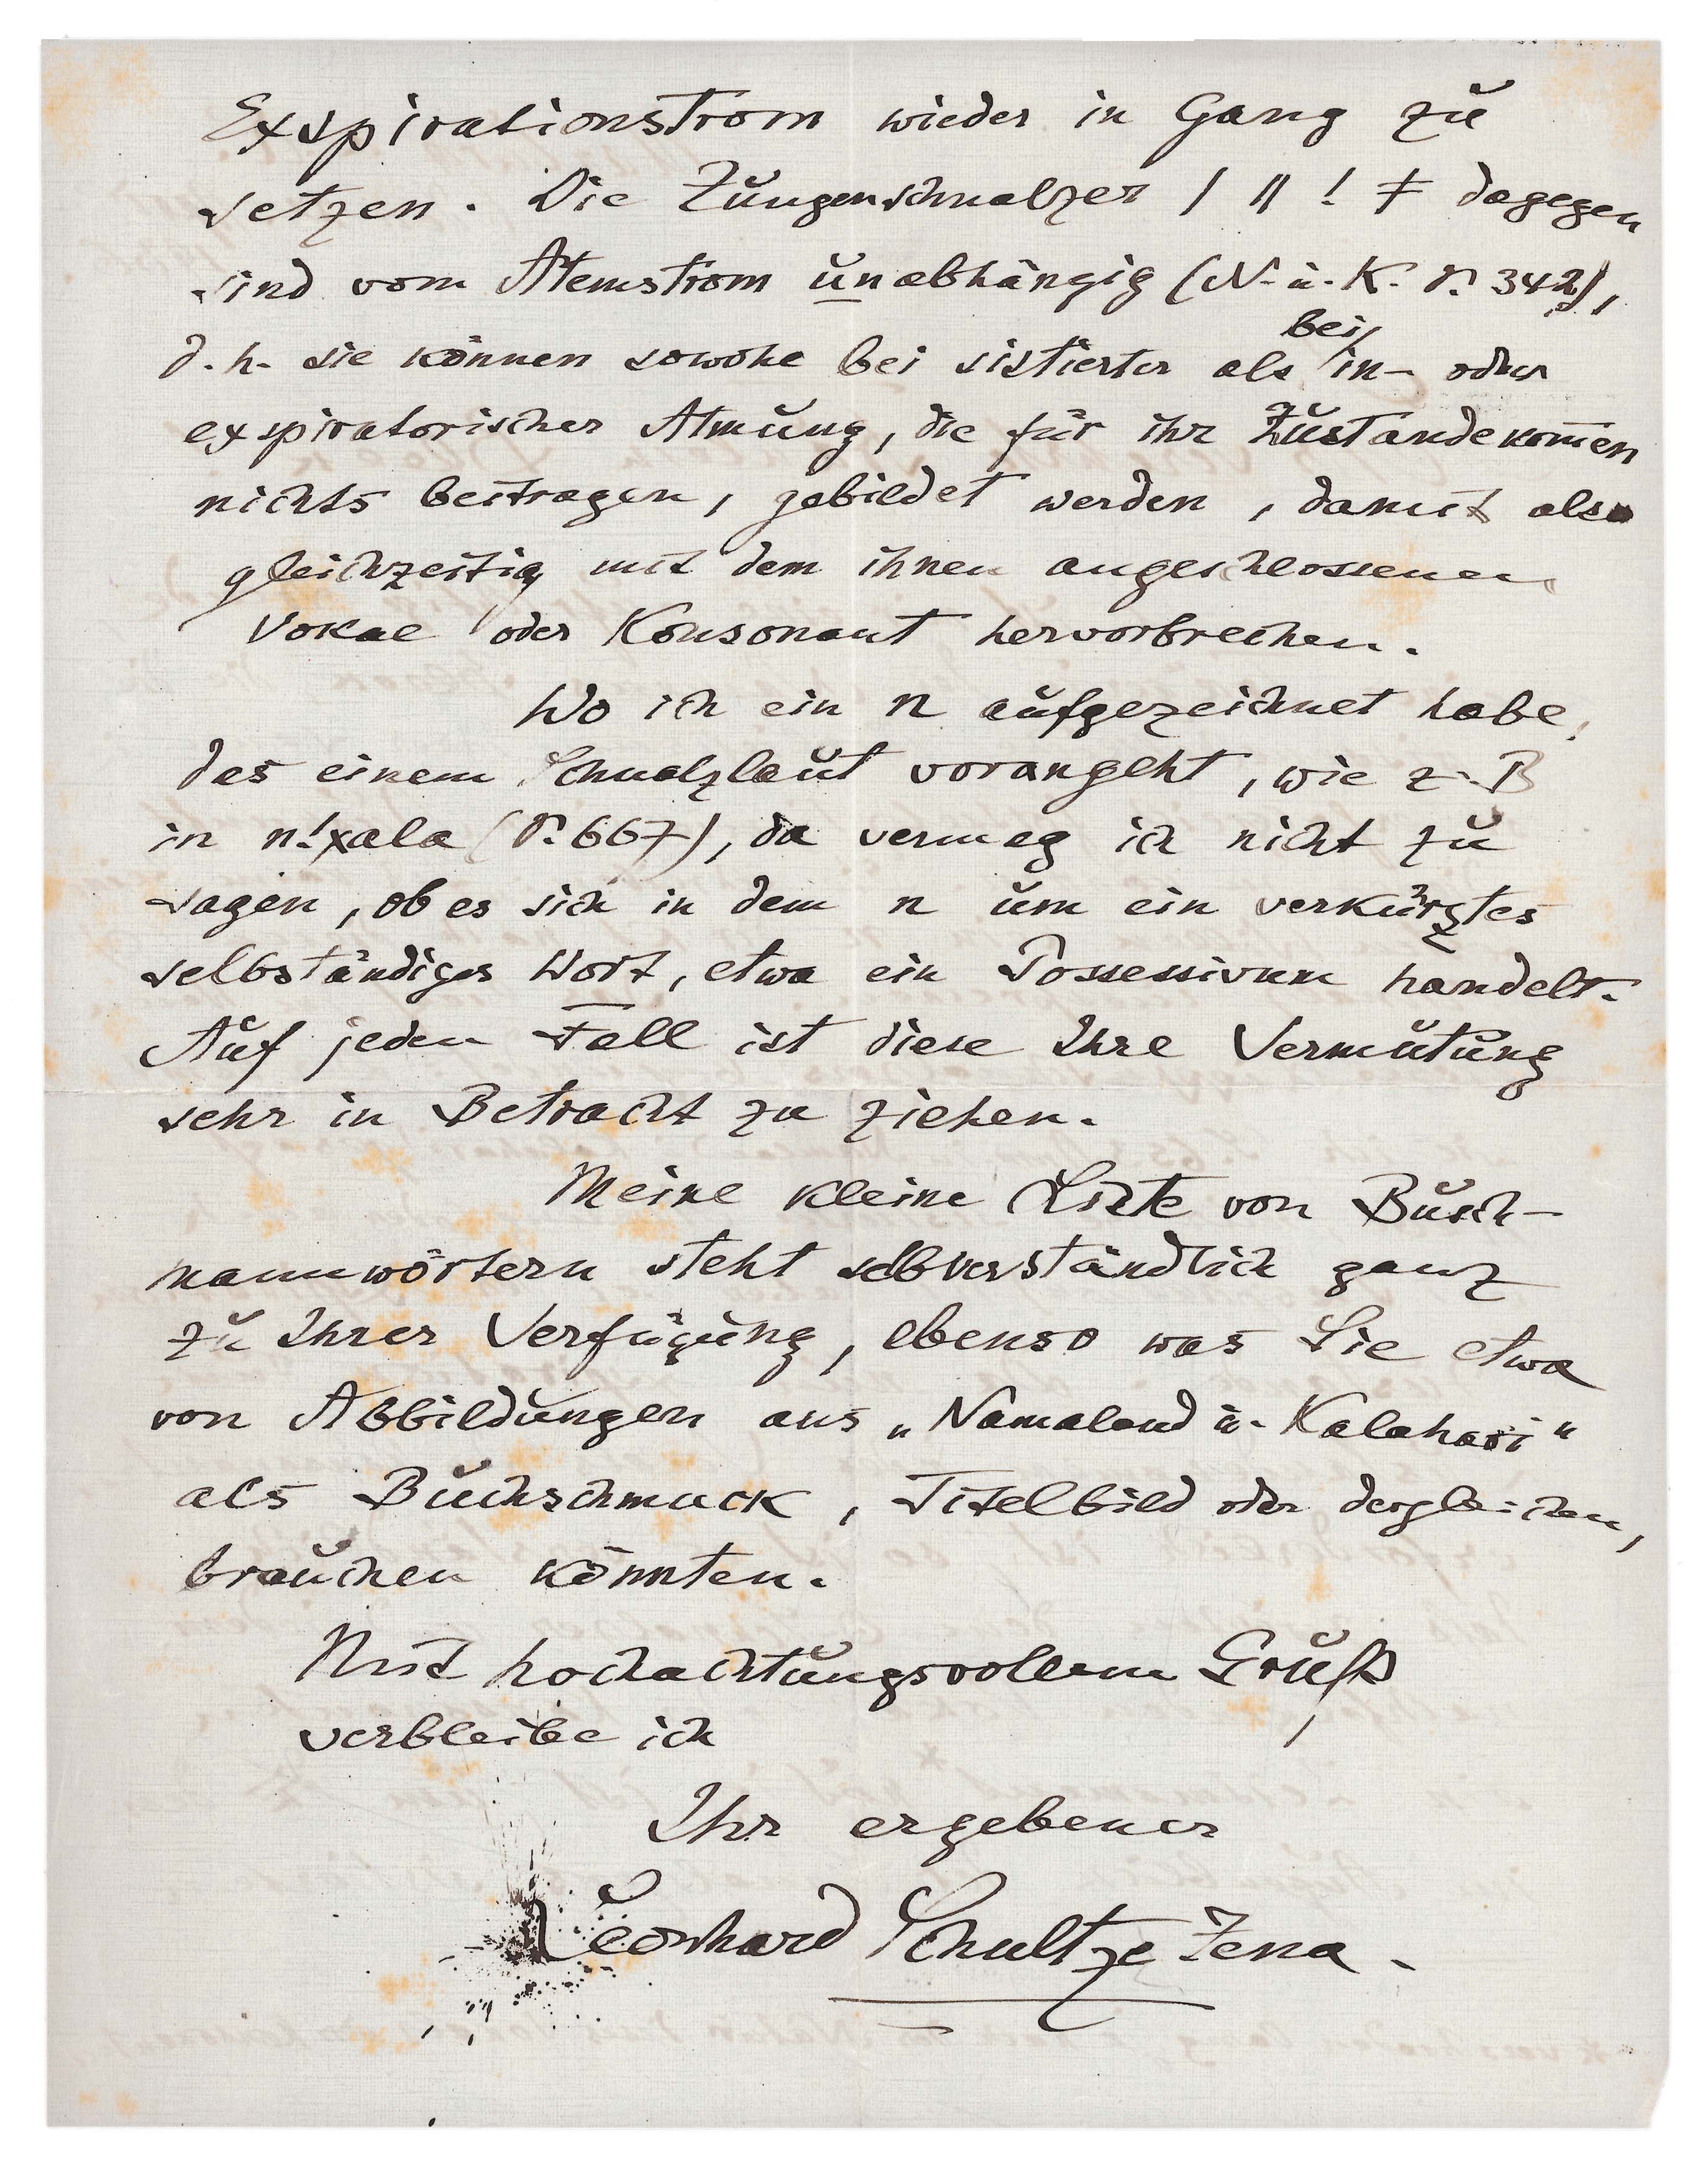 Exspirationstrom wieder in Gang zu
setzen. Die Zungenschnalzer | || ! ǂ dagegen
sind vom Atemstrom unabhängig (N. u. K. S. 342),
d. h. sie können sowohl bei sistierter als bei in- oder
exspiratorischer Atmung, die für ihr Zustandekommen
nichts beitragen, gebildet werden, damit also
gleichzeitig mit dem ihnen angeschlossenen
Vokal oder Konsonant hervorbrechen.
Wo ich ein n aufgezeichnet habe,
das einem Schnalzlaut vorangeht, wie z. B
in n!xala (S. 667), da vermag ich nicht zu
sagen, ob es sich in dem n um ein verkürztes
selbständiges Wort, etwa ein Possessivum handelt.
Auf jeden Fall ist diese Ihre Vermutung
sehr in Betracht zu ziehen.
Meine kleine Liste von Busch-
mannwörtern steht selbverständlich ganz
zu Ihrer Verfügung, ebenso was Sie etwa
von Abbildungen aus „Namaland u. Kalahari"
als Buchschmuck, Titelbild oder dergleichen,
brauchen könnten.
Mit hochachtungsvollem Gruß
verbleibe ich
Ihr ergebener
Leonhard Schultze Jena.